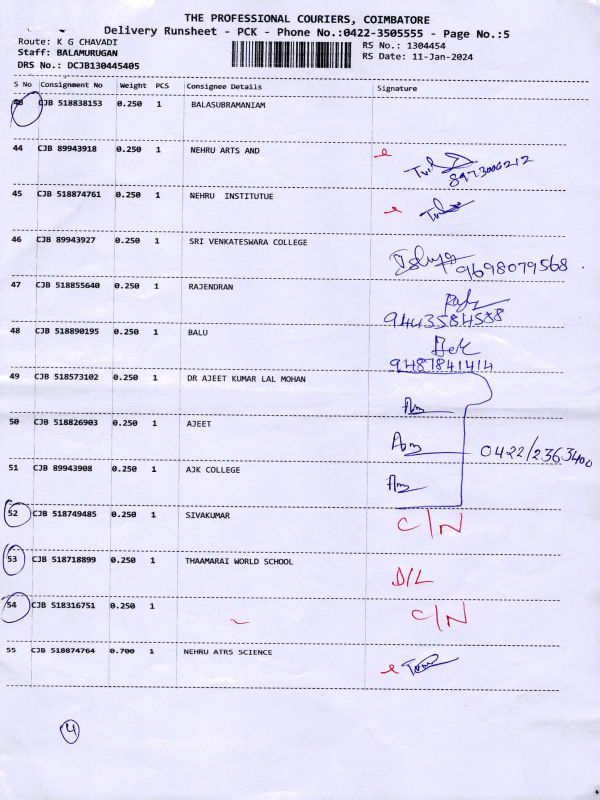 THE PROFESSIONAL COURIERS, COIMBATORE
Delivery Runsheet - PCK - Phone No.:0422-3505555 - Page No.:5
Route: K G CHAVADI
RS No.: 1304454
Staff: BALAMURUGAN
RS Date: 11-Jan-2024
DRS No.: DCJB130445405
S No Consignment No Weight PCS Consignee Details Signature
CJB 518838153 0.250 1 BALASUBRAMANIAM
44 CJB 89943918 0.250 1 NEHRU ARTS AND
8973006212
45 CJB 518874761 0.250 1 NEHRU INSTITUTUE
46 CJB 89943927 0.250 1 SRI VENKATESWARA COLLEGE
9698079568
47 CJB 518855640 0.250 1 RAJENDRAN
9443584538
48 CJB 518890195 0.250 1 BALU
9487841414
49 CJB 518573102 0.250 1 DR AJEET KUMAR LAL MOHAN
50 CJB 518826903 0.250 1 AJEET
0422/2363400
51 CJB 89943908 0.250 1 AJK COLLEGE
52 CJB 518749485 0.250 1 SIVAKUMAR C/N
53 CJB 518718899 0.250 1 THAAMARAI WORLD SCHOOL
D/L
54 CJB 518316751 0.250 1 C/N
55 CJB 518874764 0.700 1 NEHRU ATRS SCIENCE
4